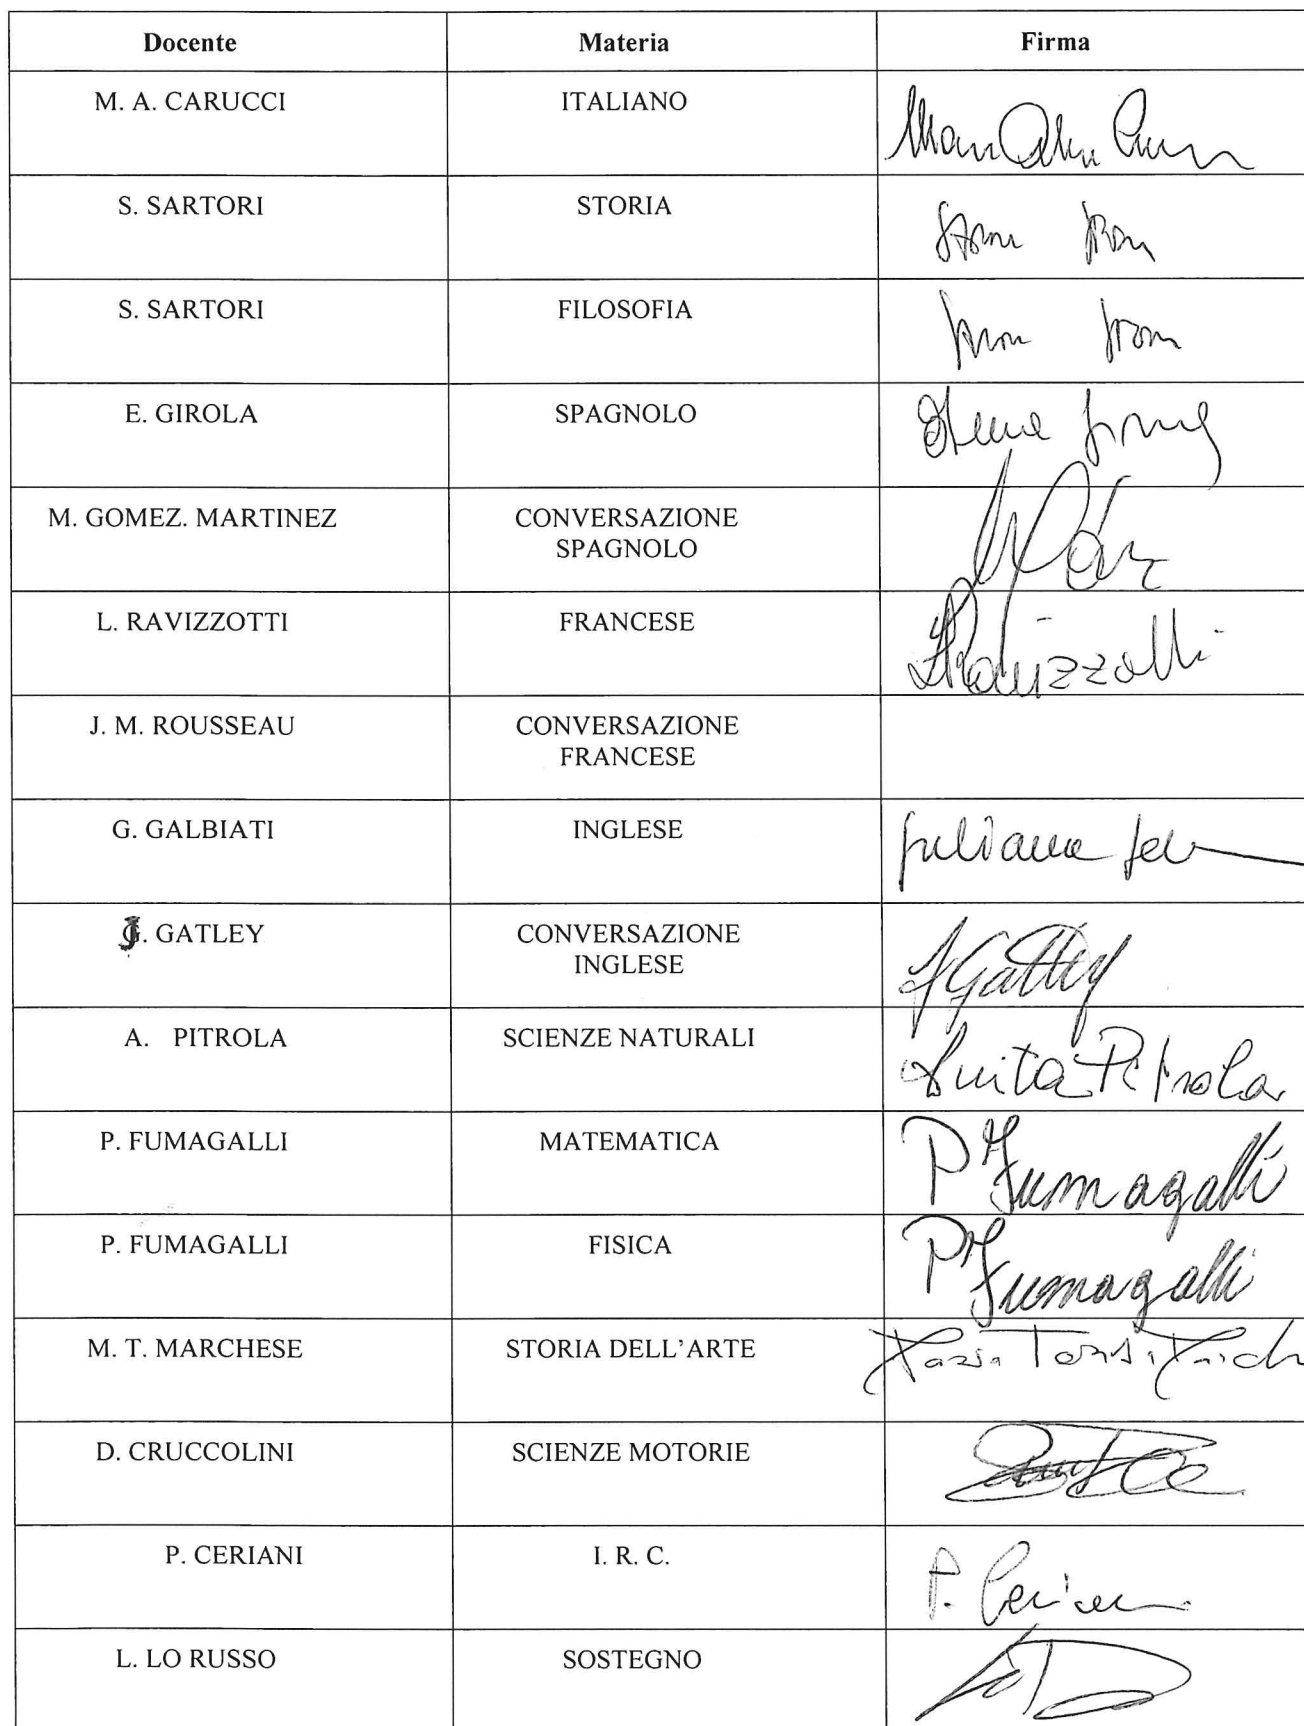 Docente Materia Firma
M. A. CARUCCI ITALIANO
S. SARTORI STORIA
S. SARTORI FILOSOFIA
E. GIROLA SPAGNOLO Elena
M. GOMEZ. MARTINEZ CONVERSAZIONE
SPAGNOLO
L. RAVIZZOTTI FRANCESE LRavizzotti
J. M. ROUSSEAU CONVERSAZIONE
FRANCESE
G. GALBIATI INGLESE Giuliana
J. GATLEY CONVERSAZIONE
INGLESE JGatley
A. PITROLA SCIENZE NATURALI Anita Pitrola
P. FUMAGALLI MATEMATICA P Fumagalli
P. FUMAGALLI FISICA P Fumagalli
M. T. MARCHESE STORIA DELL'ARTE
D. CRUCCOLINI SCIENZE MOTORIE
P. CERIANI I. R. C. P. Ceriani
L. LO RUSSO SOSTEGNO